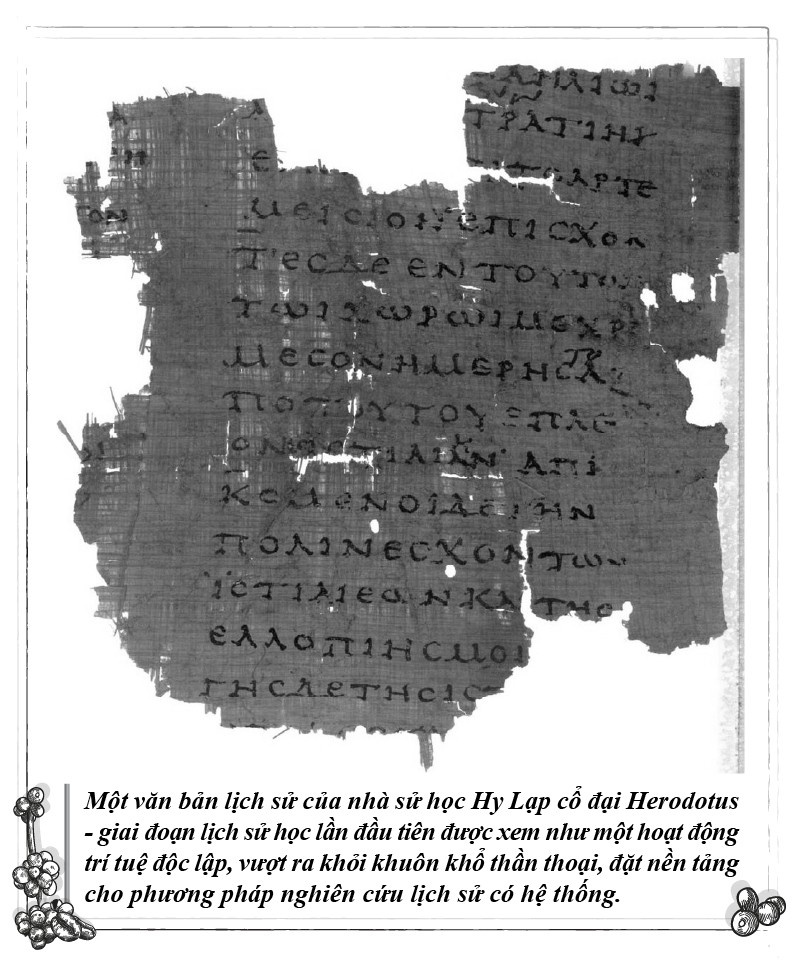 ΑΗΛΙΩΙ
ΤΡΑΤΙΗΝ
ΑΡΤΕ
ΤΟΝ
ΜΕΙCΙΟΝ ΕΠΙCΧΟΝ
ΤΕCΔΕ ΕΝ ΤΟΥΤΩ
ΤΩΙ ΧΩΡΩΙ ΜΕΧΡΙ
ΜΕCΟΝ ΗΜΕΡΗC
ΠΟ ΤΟΥΤΟΥ ΕΠΛΕ
ΑΠΙ
ΚΟΜΕΝΟΙ ΔΕ ΤΗΝ
ΠΟΛΙΝ ΕCΧΟΝ ΤΩΝ
ΙCΤΙΑΙΕΩΝ ΚΑΙ ΤΗC
ΕΛΛΟΠΙΗC ΜΟΙ
ΓΗC ΔΕ ΤΗC ΙC
Một văn bản lịch sử của nhà sử học Hy Lạp cổ đại Herodotus
- giai đoạn lịch sử học lần đầu tiên được xem như một hoạt động
trí tuệ độc lập, vượt ra khỏi khuôn khổ thần thoại, đặt nền tảng
cho phương pháp nghiên cứu lịch sử có hệ thống.